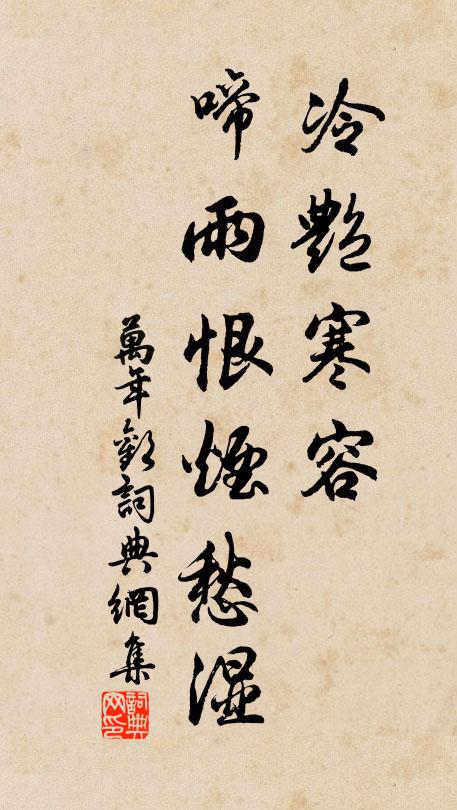 冷艷寒容
啼雨恨煙愁湿
萬年歡詞典網集
詞典网印